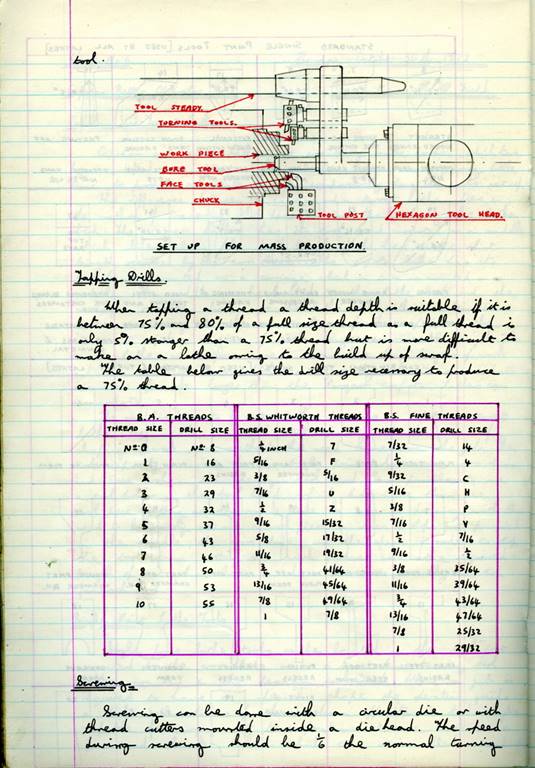 tool.
TOOL STEADY.
TURNING TOOLS.
WORK PIECE
BORE TOOL
FACE TOOLS
CHUCK
TOOL POST
HEXAGON TOOL HEAD.
SET UP FOR MASS PRODUCTION.
Tapping Drills.
When tapping a thread a thread depth is suitable if it is
between 75% and 80% of a full size thread as a full thread is
only 5% stronger than a 75% thread but is more difficult to
make on a lathe owing to the build up of swarf.
The table below gives the drill size necessary to produce
a 75% thread.
B.A. THREADS B.S. WHITWORTH THREADS B.S. FINE THREADS
THREAD SIZE DRILL SIZE THREAD SIZE DRILL SIZE THREAD SIZE DRILL SIZE
No 0 No 8 1/4 INCH 7 7/32 14
1 16 5/16 F 1/4 4
2 23 3/8 5/16 9/32 C
3 29 7/16 U 5/16 H
4 32 1/2 Z 3/8 P
5 37 9/16 15/32 7/16 V
6 43 5/8 17/32 1/2 7/16
7 46 11/16 19/32 9/16 1/2
8 50 3/4 41/64 3/8 35/64
9 53 13/16 45/64 11/16 39/64
10 55 7/8 49/64 3/4 43/64
1 7/8 13/16 47/64
7/8 25/32
1 29/32
Screwing.
Screwing can be done with a circular die or with
thread cutters mounted inside a die head. The speed
during screwing should be 1/6 the normal turning